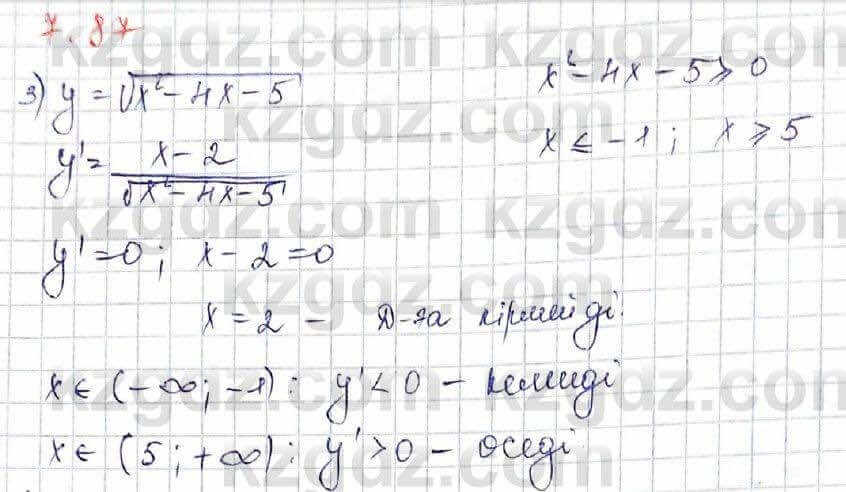 7.87
3) y = √x² - 4x - 5
x² - 4x - 5 ⩾ 0
x ⩽ -1; x ⩾ 5
y' = x - 2 / √x² - 4x - 5
y' = 0; x - 2 = 0
x = 2 - D-ға кірмейді.
x ∈ (-∞; -1): y' < 0 - кемиді
x ∈ (5; +∞): y' > 0 - өседі
kzgdz.com
kzgdz.com
kzgdz.com
kzgdz.com
kzgdz.com
kzgdz.com
kzgdz.com
kzgdz.com
kzgdz.com
kzgdz.com